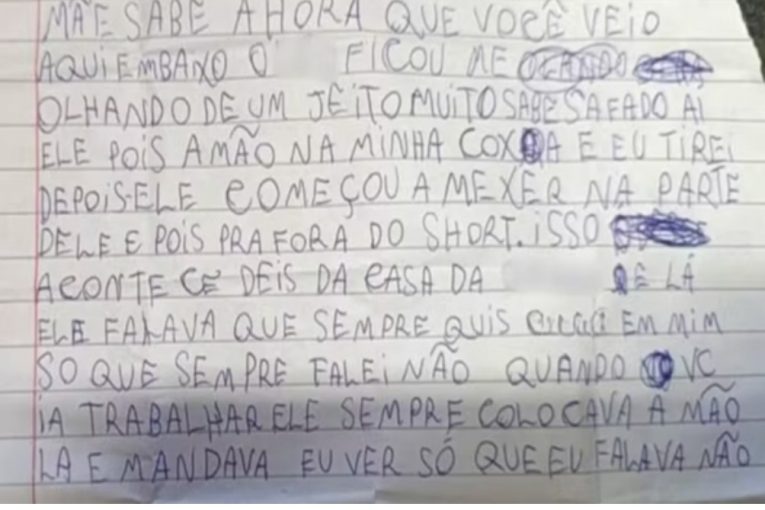 MÃE SABE AHORA QUE VOCÊ VEIO
AQUI EMBAXO O FICOU ME
OLHANDO DE UM JEITO MUITO SABE SAFADO AI
ELE POIS A MÃO NA MINHA COXA E EU TIREI
DEPOIS ELE COMEÇOU A MEXER NA PARTE
DELE E POIS PRA FORA DO SHORT. ISSO
ACONTE CE DEIS DA CASA DA DE LÁ
ELE FALAVA QUE SEMPRE QUIS EM MIM
SO QUE SEMPRE FALEI NÃO QUANDO VC
IA TRABALHAR ELE SEMPRE COLOCAVA A MÃO
LA E MANDAVA EU VER SÓ QUE EU FALAVA NÃO